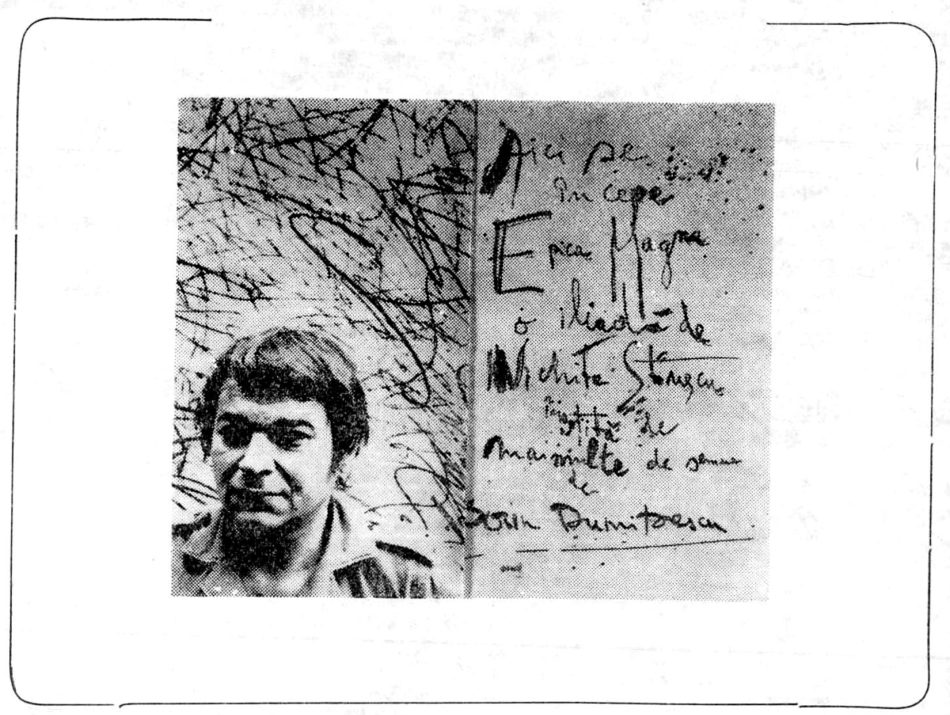 Aici se
începe
Epica Magna
o iliadă de
Nichita Stănescu
de
mai multe desene
de
Sorin Dumitrescu